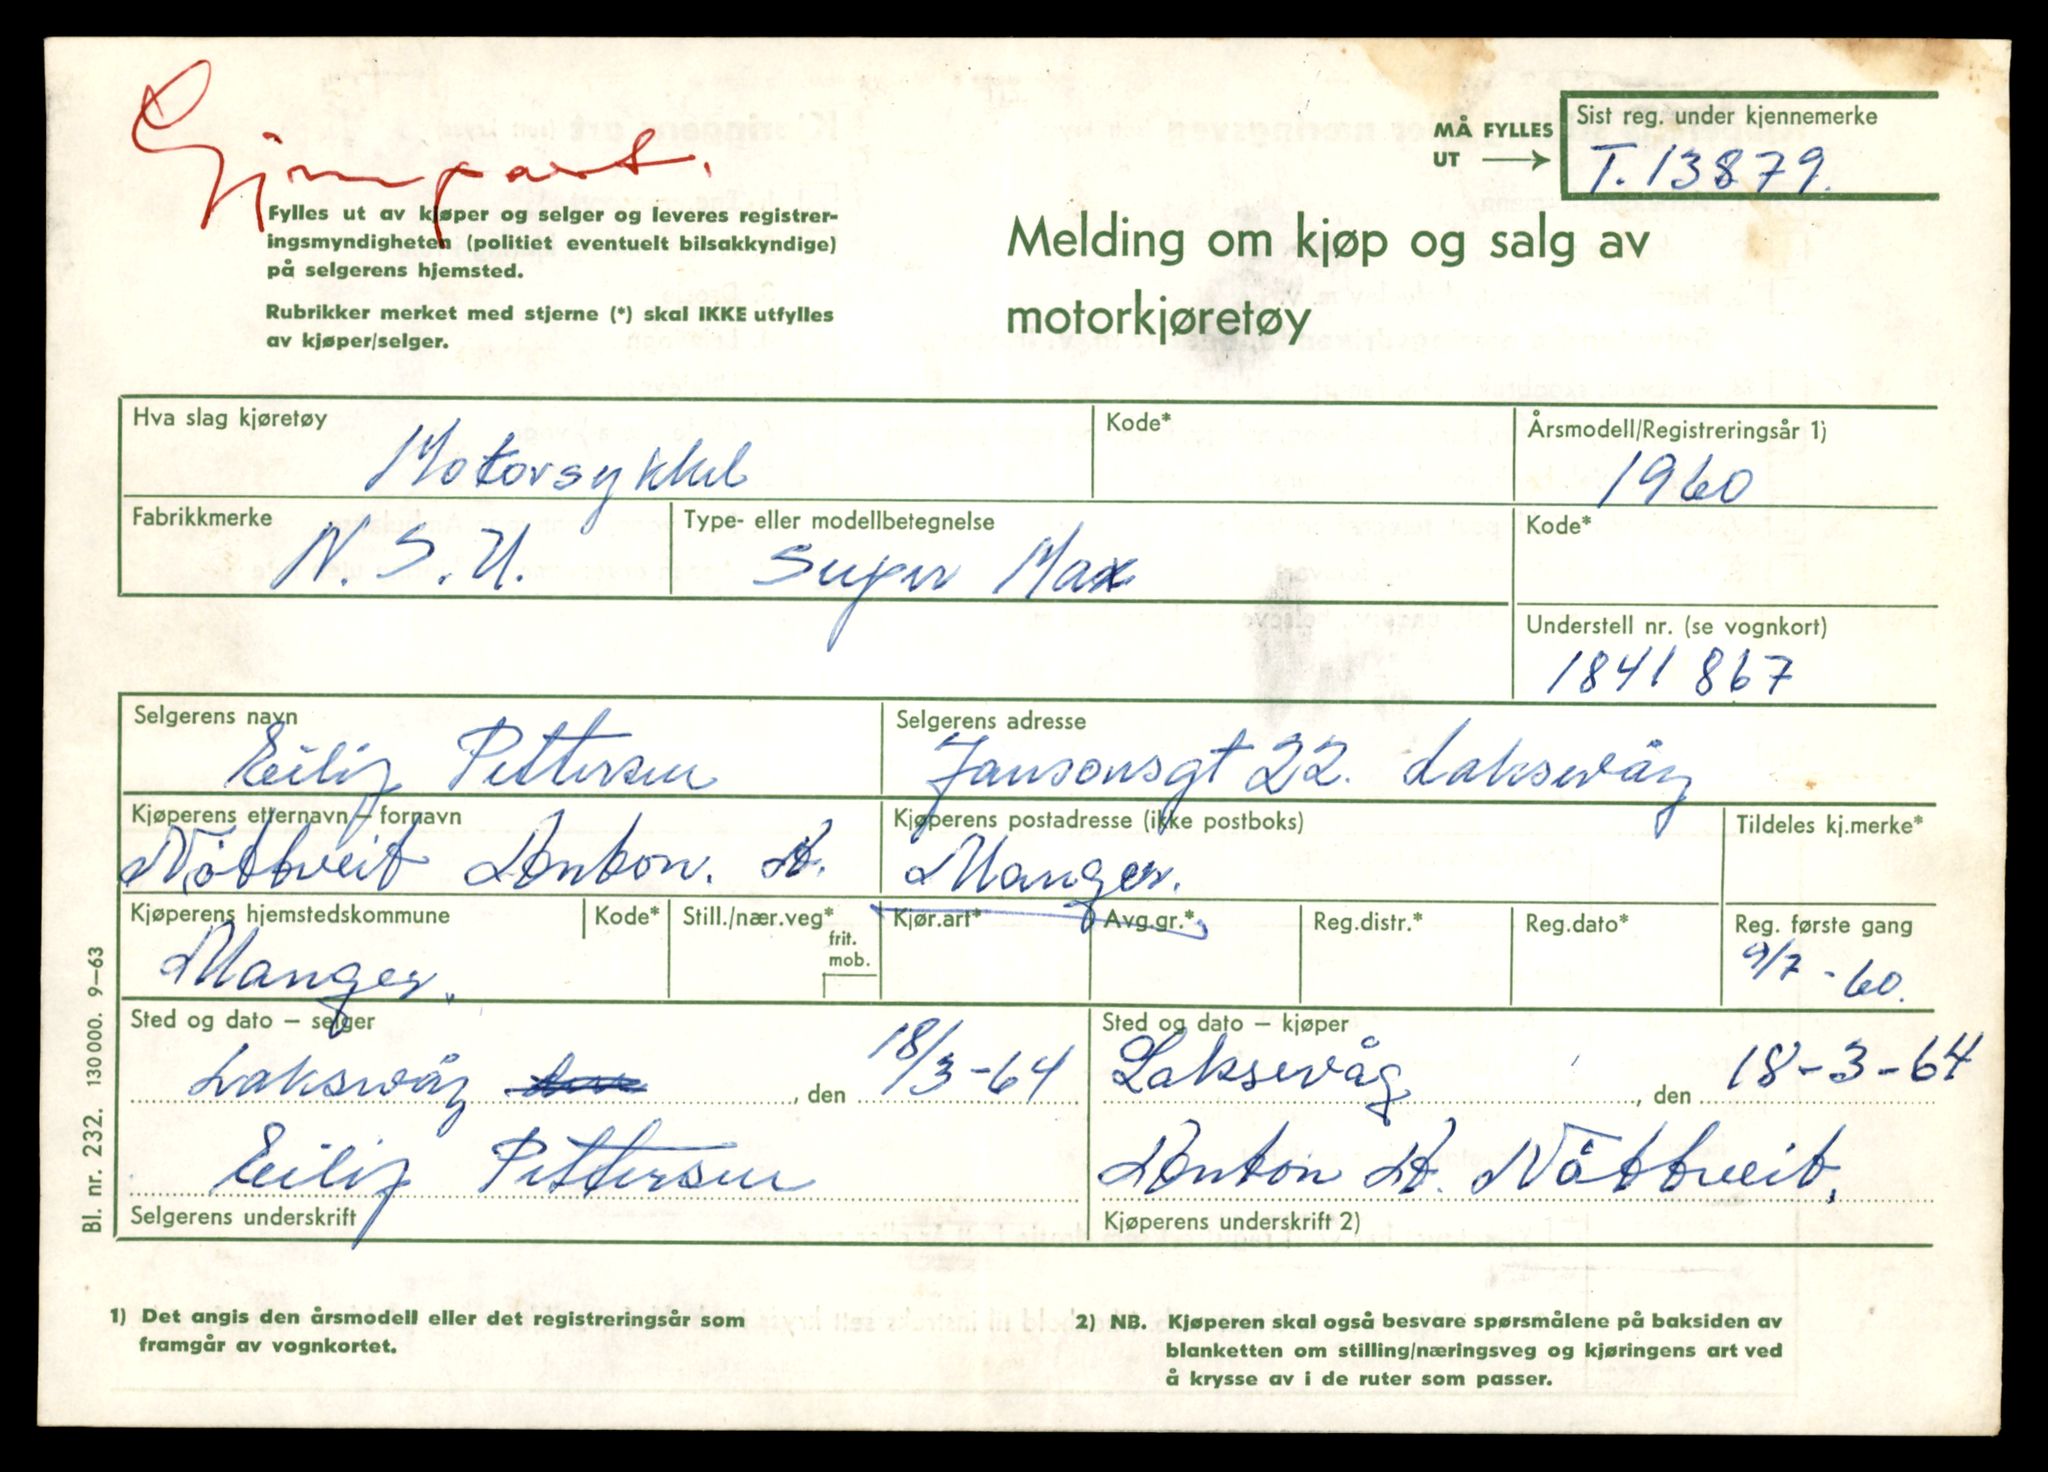 Gjenpart.
MÅ FYLLES
UT
Sist reg. under kjennemerke
T. 13879.
Fylles ut av kjøper og selger og leveres registrer-
ingsmyndigheten (politiet eventuelt bilsakkyndige)
på selgerens hjemsted.
Rubrikker merket med stjerne (*) skal IKKE utfylles
av kjøper/selger.
Melding om kjøp og salg av
motorkjøretøy
Hva slag kjøretøy
Motorsykkel
Kode*
Årsmodell/Registreringsår 1)
1960
Fabrikkmerke
N. S. U.
Type- eller modellbetegnelse
Super Max
Kode*
Understell nr. (se vognkort)
1841867
Selgerens navn
Eilif Pettersen
Selgerens adresse
Jansonsgt 22. Laksevåg
Kjøperens etternavn – fornavn
Nåttveit Anton. A.
Kjøperens postadresse (ikke postboks)
Manger.
Tildeles kj.merke*
Kjøperens hjemstedskommune
Manger.
Kode*
Still./nær.veg*
frit.
mob.
Kjør.art*
Avg.gr.*
Reg.distr.*
Reg.dato*
Reg. første gang
9/7 - 60.
Sted og dato – selger
Laksevåg , den 18/3-64
Sted og dato – kjøper
Laksevåg , den 18-3-64
Eilif Pettersen
Selgerens underskrift
Anton A. Nåttveit.
Kjøperens underskrift 2)
Bl. nr. 232. 130 000. 9–63
1) Det angis den årsmodell eller det registreringsår som
framgår av vognkortet.
2) NB. Kjøperen skal også besvare spørsmålene på baksiden av
blanketten om stilling/næringsveg og kjøringens art ved
å krysse av i de ruter som passer.